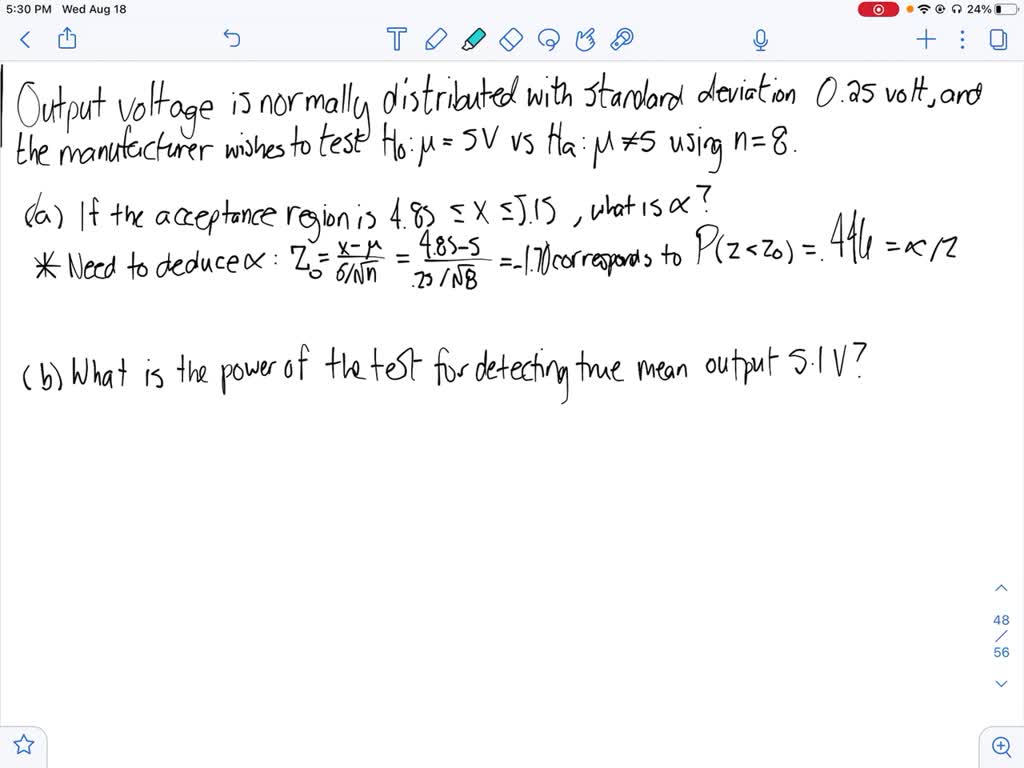 5:30 PM Wed Aug 18
24%
Output voltage is normally distributed with standard deviation 0.25 volt, and
the manufacturer wishes to test H₀: μ = 5V vs Ha: μ ≠ 5 using n = 8.
(a) If the acceptance region is 4.85 ≤ X ≤ 5.15, what is α?
* Need to deduce α: Z₀ = x-μ / σ/√n = 4.85-5 / .25/√8 = -1.70 corresponds to P(Z<Z₀) = .446 = α/2
(b) What is the power of the test for detecting true mean output 5.1 V?
48
/
56